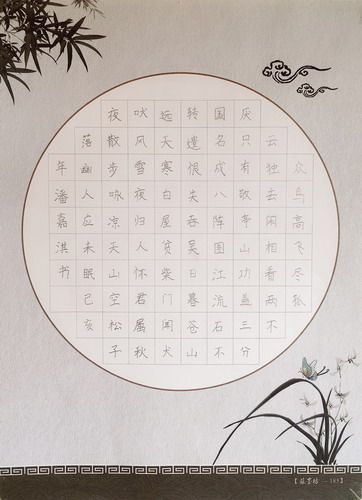 众鸟高飞尽孤
云独去闲相看两不
厌只有敬亭山功盖三分
国名成八阵图江流石不
转遗恨失吞吴日暮苍山
远天寒白屋贫柴门闻犬
吠风雪夜归人怀君属秋
夜散步咏凉天山空松子
落幽人应未眠已亥
年潘嘉淇书